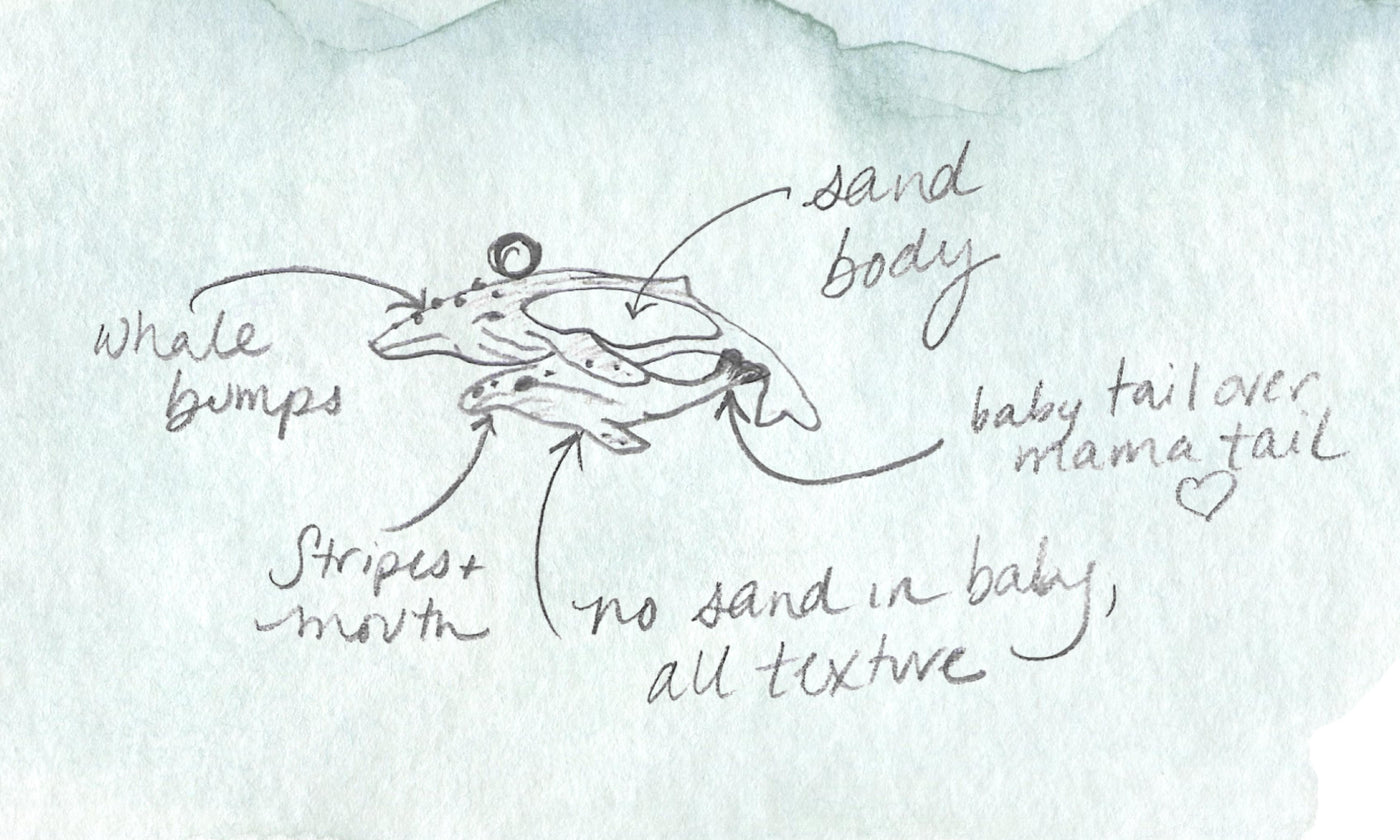 sand
body
whale
bumps
baby tail over
mama tail
Stripes +
mouth
no sand in baby,
all texture